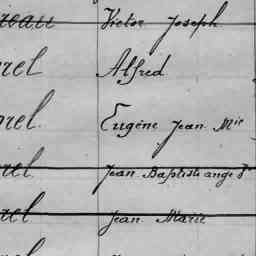 Victor Joseph
rel Alfred
rel Eugène Jean Mie
rel Jean Baptiste ange
rel Jean Marie